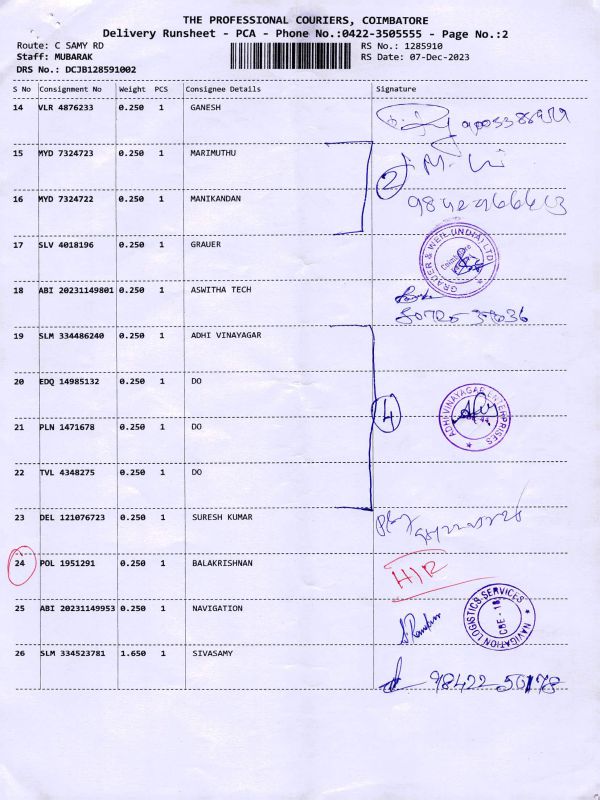 THE PROFESSIONAL COURIERS, COIMBATORE
Delivery Runsheet - PCA - Phone No.:0422-3505555 - Page No.:2
Route: C SAMY RD
RS No.: 1285910
Staff: MUBARAK
RS Date: 07-Dec-2023
DRS No.: DCJB128591002
S No Consignment No Weight PCS Consignee Details Signature
14 VLR 4876233 0.250 1 GANESH
15 MYD 7324723 0.250 1 MARIMUTHU
2
16 MYD 7324722 0.250 1 MANIKANDAN
17 SLV 4018196 0.250 1 GRAUER
GRAUER & WEIL (INDIA) LTD
18 ABI 20231149801 0.250 1 ASWITHA TECH
19 SLM 334486240 0.250 1 ADHI VINAYAGAR
20 EDQ 14985132 0.250 1 DO
4
ADHI VINAYAGAR ENTERPRISES
21 PLN 1471678 0.250 1 DO
22 TVL 4348275 0.250 1 DO
23 DEL 121076723 0.250 1 SURESH KUMAR
24 POL 1951291 0.250 1 BALAKRISHNAN
25 ABI 20231149953 0.250 1 NAVIGATION
NAVIGATION LOGISTICS SERVICES
CBE - 18
26 SLM 334523781 1.650 1 SIVASAMY
98422 50178